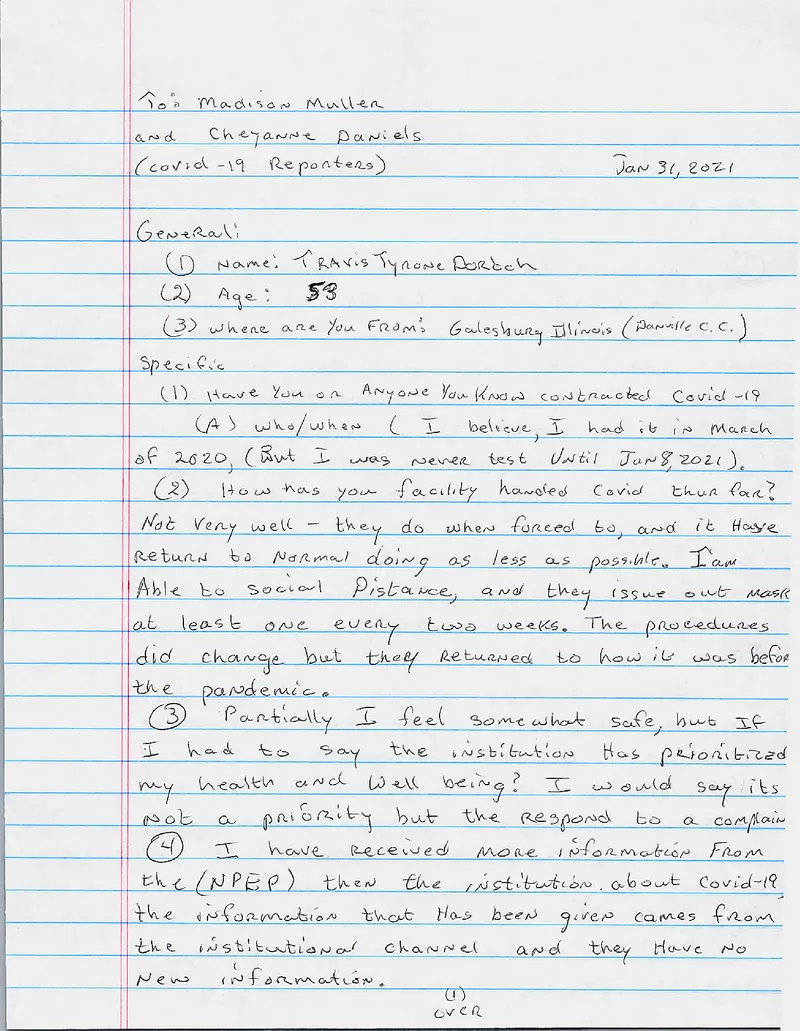 To: Madison Muller
and Cheyanne Daniels
(covid-19 Reporters) Jan 31, 2021
General:
(1) Name: Travis Tyrone Dortch
(2) Age: 53
(3) where are You From: Galesburg Illinois (Danville C.C.)
Specific
(1) Have You or Anyone You Know contracted Covid-19
(A) who/when ( I believe, I had it in March
of 2020, (But I was never test Until Jan 8, 2021).
(2) How has you facility handed Covid thur far?
Not very well - they do when forced to, and it Have
return to Normal doing as less as possible. I'am
Able to social Distance, and they issue out mask
at least one every two weeks. The procedures
did change but they returned to how it was befor
the pandemic.
(3) Partially I feel somewhat safe, but If
I had to say the institution Has prioritized
my health and Well being? I would say its
Not a priority but the respond to a complain
(4) I have received more information From
the (NPEP) then the institution. about Covid-19
the information that Has been given comes from
the institutional channel and they Have No
New information.
(1)
over